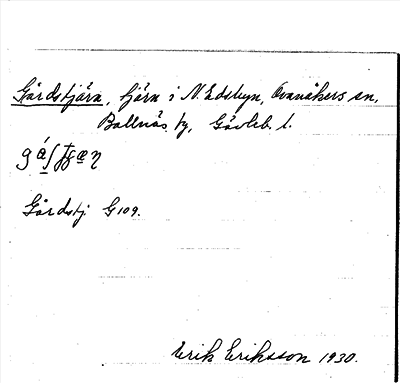 Gårdstjärn, tjärn i N. Edsbyn, Ovanåkers sn,
Bollnäs fg, Gävleb. l.
Gårdstj G 109.
Erik Eriksson 1930.